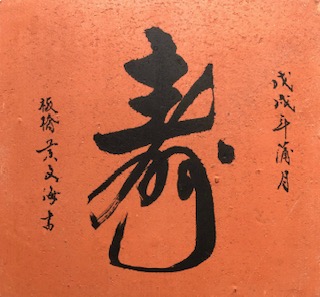 戊戌年蒲月
寿
板橋叶文海書